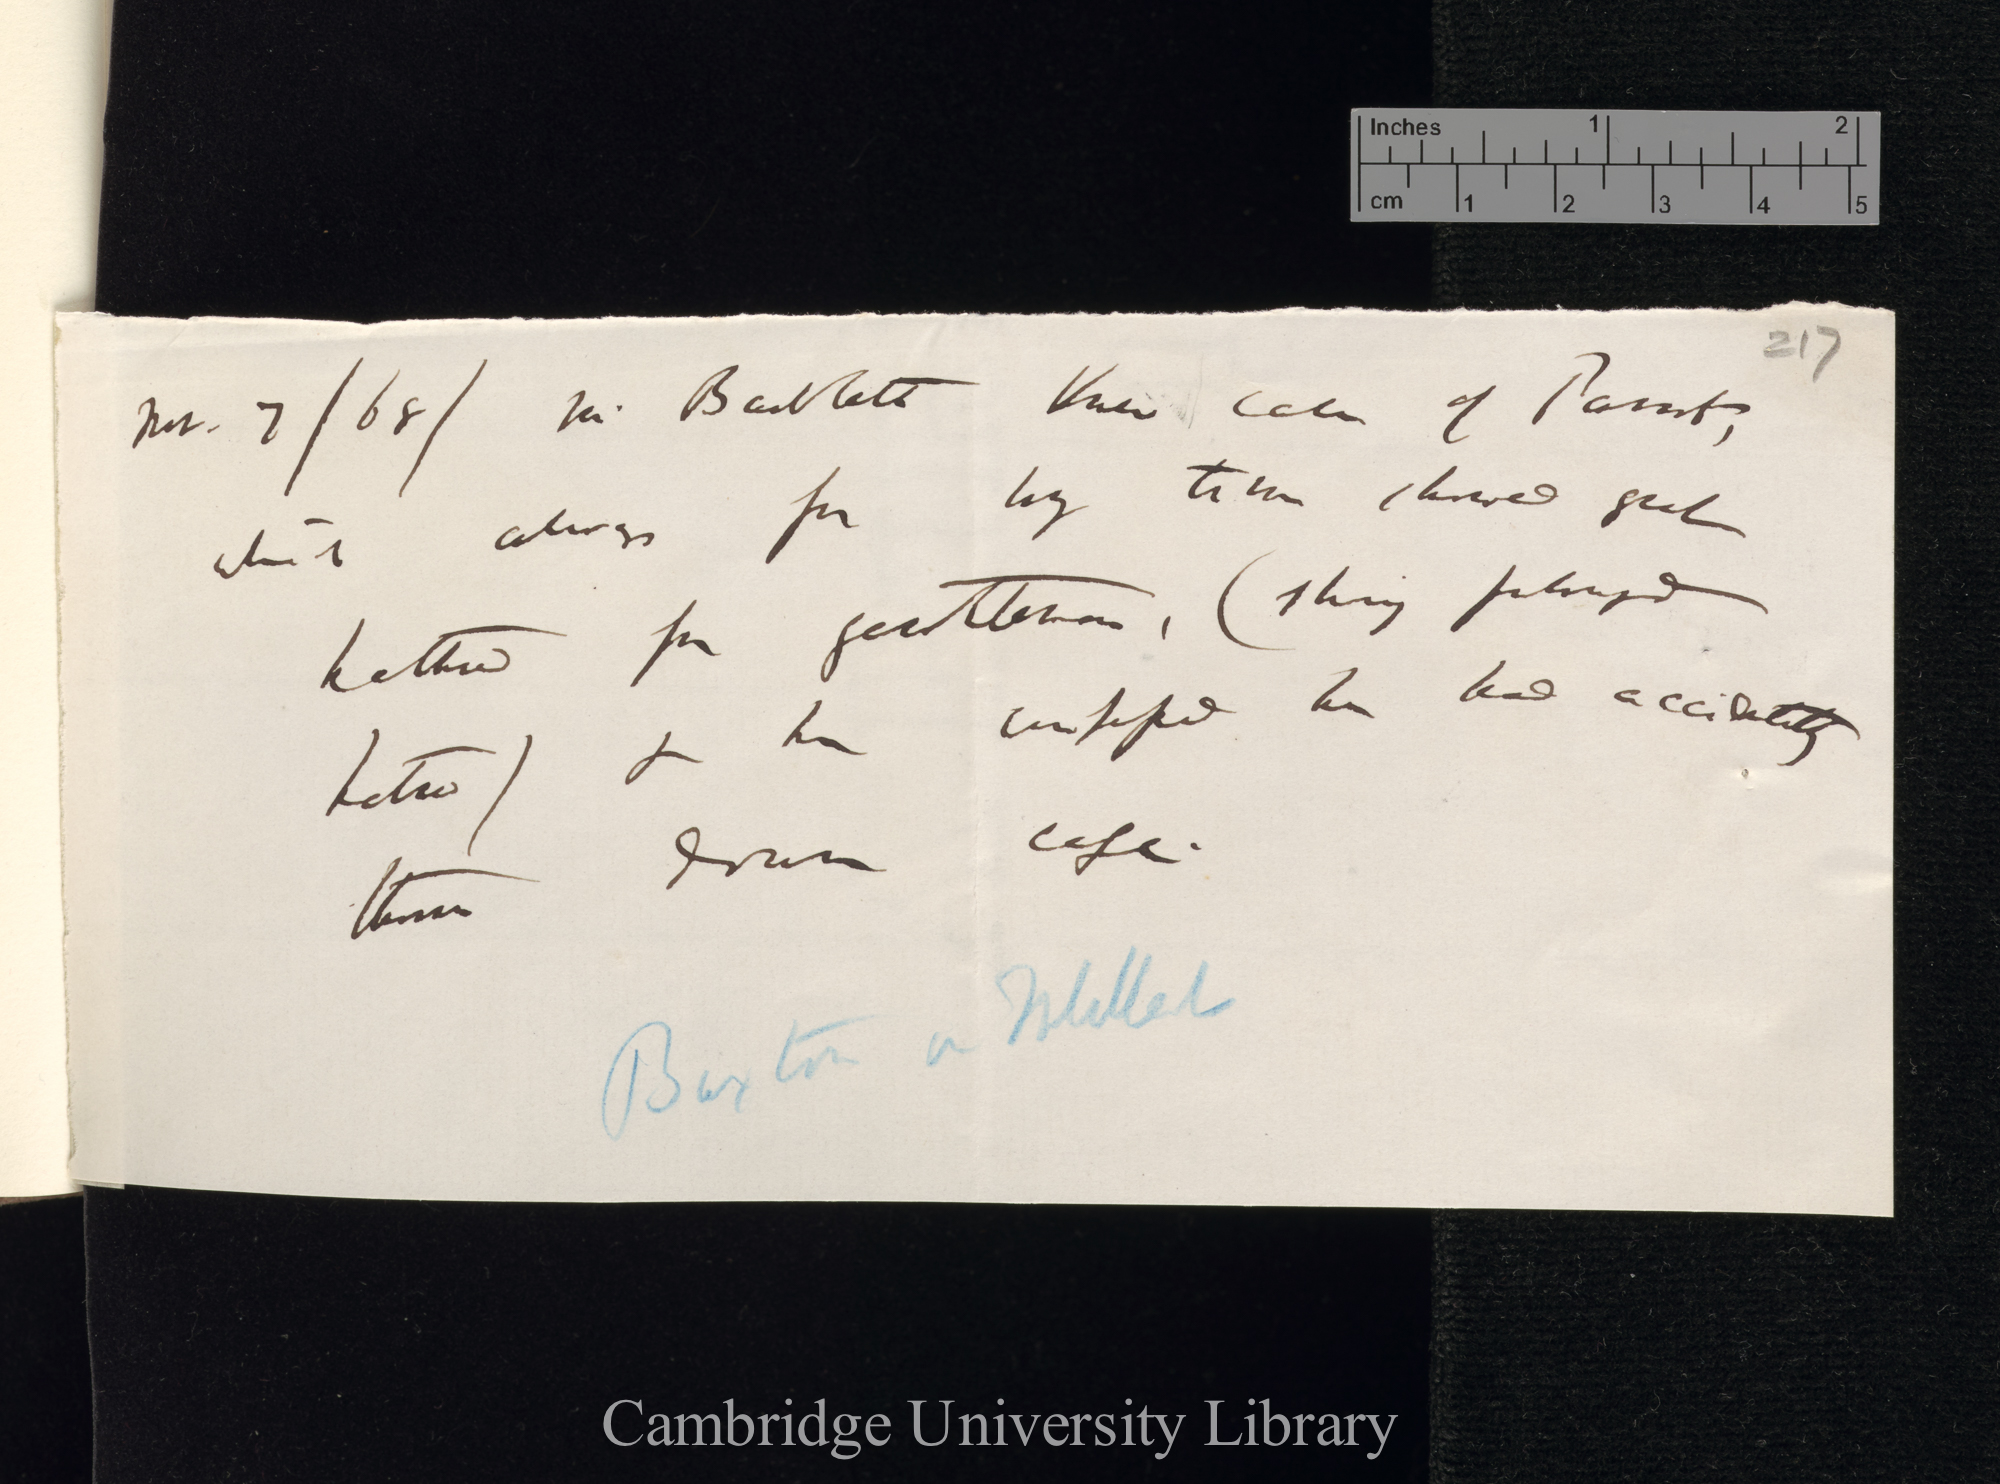 217
Nov. 7/68/ Mr Bartlett knew case of Parrot,
which always for long time showed great
hatred for gentleman, (strong prolonged
hatred) & he confessed he had accidentally
thrown down cage.
Buxton on
Inches 1 2
cm 1 2 3 4 5
Cambridge University Library